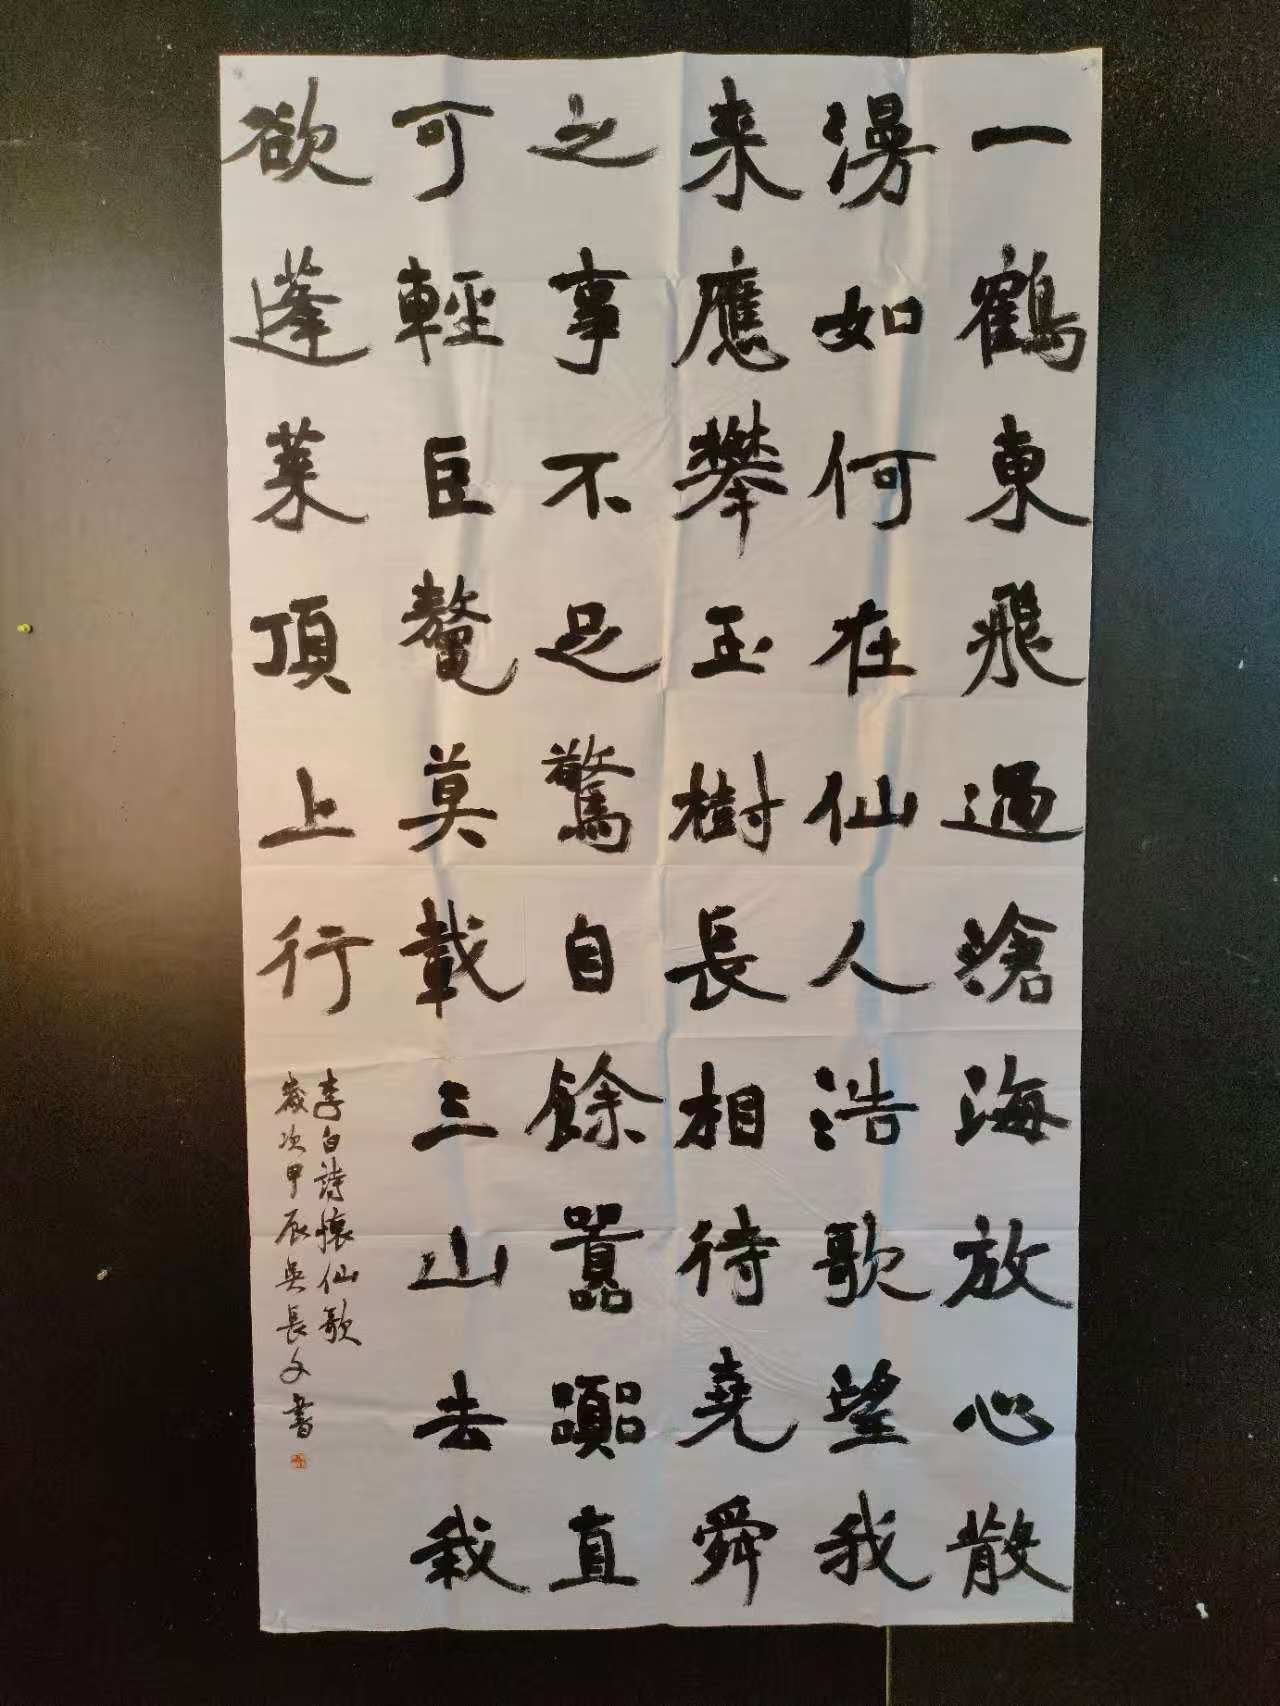 一鶴東飛過滄海放心散
漫如何在仙人浩歌望我
来應攀玉樹長相待堯舜
之事不足驚自餘囂囂直
可輕巨鰲莫載三山去我
欲蓬萊頂上行
李白詩懷仙歌
歲次甲辰吳長文書